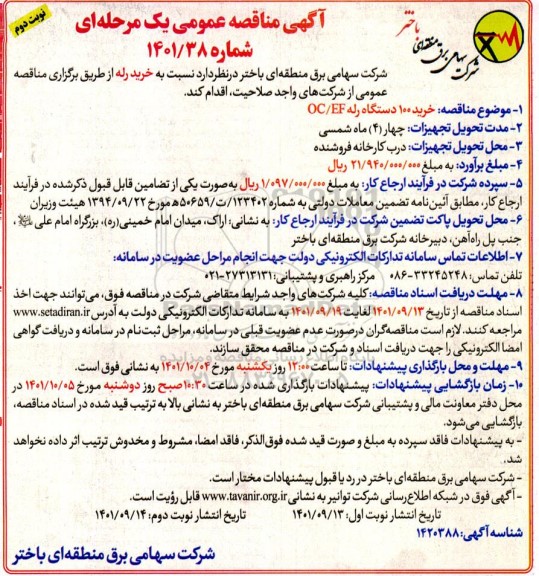 نوبت دوم
باختر
شرکت سهامی برق منطقه‌ای
آگهی مناقصه عمومی یک مرحله‌ای
شماره ۱۴۰۱/۳۸
شرکت سهامی برق منطقه‌ای باختر درنظردارد نسبت به خرید رله از طریق برگزاری مناقصه
عمومی از شرکت‌های واجد صلاحیت، اقدام کند.
۱- موضوع مناقصه: خرید ۱۰۰ دستگاه رله OC/EF
۲- مدت تحویل تجهیزات: چهار (۴) ماه شمسی
۳- محل تحویل تجهیزات: درب کارخانه فروشنده
۴- مبلغ برآورد: به مبلغ ۲۱/۹۴۰/۰۰۰/۰۰۰ ریال
۵- سپرده شرکت در فرآیند ارجاع کار: به مبلغ ۱/۰۹۷/۰۰۰/۰۰۰ ریال به‌صورت یکی از تضامین قابل قبول ذکرشده در فرآیند
ارجاع کار، مطابق آئین‌نامه تضمین معاملات دولتی به شماره ۱۲۳۴۰۲/ت۵۰۶۵۹ه مورخ ۱۳۹۴/۰۹/۲۲ هیئت وزیران
۶- محل تحویل پاکت تضمین شرکت در فرآیند ارجاع کار: به نشانی: اراک، میدان امام خمینی(ره)، بزرگراه امام علی ،
جنب پل راه‌آهن، دبیرخانه شرکت برق منطقه‌ای باختر
۷- اطلاعات تماس سامانه تدارکات الکترونیکی دولت جهت انجام مراحل عضویت در سامانه:
تلفن تماس: ۳۳۲۴۵۲۴۸-۰۸۶ مرکز راهبری و پشتیبانی: ۲۷۳۱۳۱۳۱-۰۲۱
۸- مهلت دریافت اسناد مناقصه: کلیه شرکت‌های واجد شرایط متقاضی شرکت در مناقصه فوق، می‌توانند جهت اخذ
اسناد مناقصه از تاریخ ۱۴۰۱/۰۹/۱۳ لغایت ۱۴۰۱/۰۹/۱۹ به سامانه تدارکات الکترونیکی دولت به آدرس www.setadiran.ir
مراجعه کنند. لازم است مناقصه‌گران درصورت عدم عضویت قبلی در سامانه، مراحل ثبت‌نام در سامانه و دریافت گواهی
امضا الکترونیکی را جهت دریافت اسناد و شرکت در مناقصه محقق سازند.
۹- مهلت و محل بارگذاری پیشنهادات: تا ساعت ۱۲:۰۰ روز یکشنبه مورخ ۱۴۰۱/۱۰/۰۴ به نشانی فوق است.
۱۰- زمان بازگشایی پیشنهادات: پیشنهادات بارگذاری شده در ساعت ۱۰:۳۰ صبح روز دوشنبه مورخ ۱۴۰۱/۱۰/۰۵ در
محل دفتر معاونت مالی و پشتیبانی شرکت سهامی برق منطقه‌ای باختر به نشانی بالا به ترتیب قید شده در اسناد مناقصه،
بازگشایی می‌شود.
- به پیشنهادات فاقد سپرده به مبلغ و صورت قید شده فوق‌الذکر، فاقد امضا، مشروط و مخدوش ترتیب اثر داده نخواهد
شد.
- شرکت سهامی برق منطقه‌ای باختر در رد یا قبول پیشنهادات مختار است.
- آگهی فوق در شبکه اطلاع‌رسانی شرکت توانیر به نشانی www.tavanir.org.ir قابل رؤیت است.
تاریخ انتشار نوبت اول: ۱۴۰۱/۰۹/۱۳ تاریخ انتشار نوبت دوم: ۱۴۰۱/۰۹/۱۴
شناسه آگهی: ۱۴۲۰۳۸۸
شرکت سهامی برق منطقه‌ای باختر